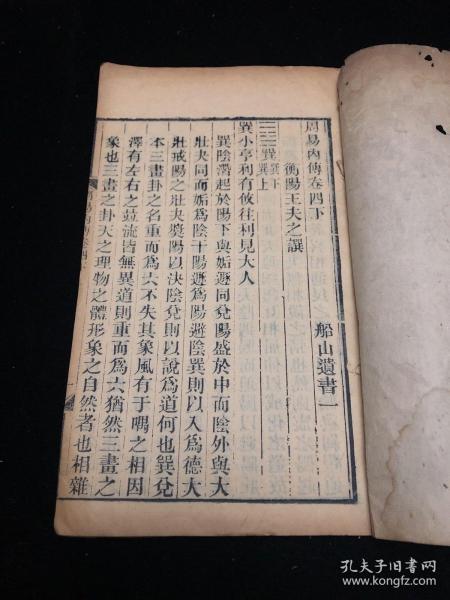 周易內傳卷四下
船山遺書一
衡陽王夫之譔
䷸巽下巽上
巽小亨利有攸往利見大人
巽陰潛起於陽下與姤遯同兌陽盛於中而陰外與大
壯夬同而姤爲陰干陽遯爲陽避陰巽則以入爲德大
壯戒陽之壯夬獎陽以決陰兌則以說爲道何也巽兌
本三畫卦之名重而爲六不失其象風有于喁之相因
澤有左右之竝流皆無異道則重而爲六猶然三畫之
象也三畫之卦天之理物之體形象之自然者也相雜
孔夫子旧书网
www.kongfz.com